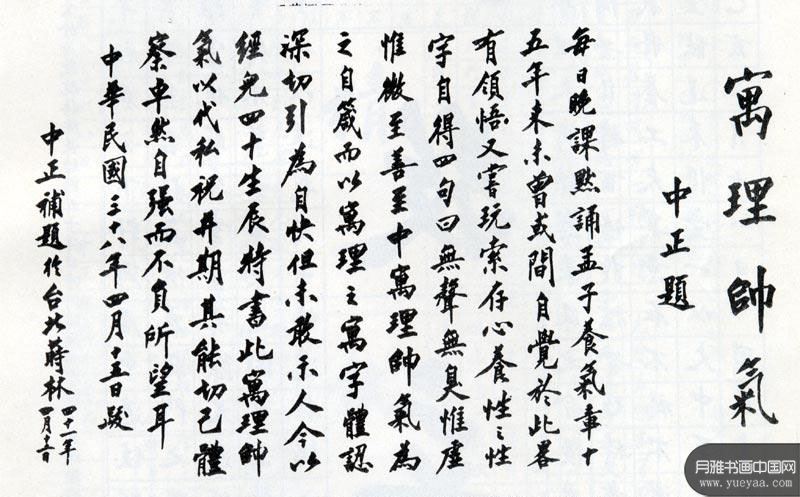 寓理帥氣
中正題
每日晚課默誦孟子養氣章十
五年来未曾或間自覺於此畧
有領悟又嘗玩索存心養性之性
字自得四句曰無聲無臭惟虛
惟微至善至中寓理帥氣為
之自箴而以寓理之寓字體認
深切引為自快但未敢示人今以
經兒四十生辰特書此寓理帥
氣以代私祝并期其能切己體
察卓然自强而不負所望耳
中華民國三十八年四月十五日跋
中正補題於台北蔣林
四十一年
四月
月雅书画中国网
www.yueyaa.com